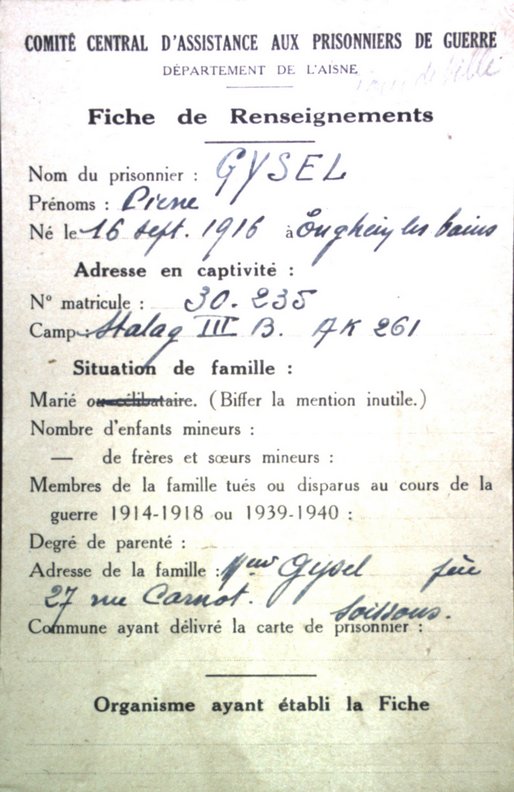 COMITÉ CENTRAL D'ASSISTANCE AUX PRISONNIERS DE GUERRE
DÉPARTEMENT DE L'AISNE
Fiche de Renseignements
Nom du prisonnier : GYSEL
Prénoms : Pierre
Né le 16 sept. 1916 à Enghein les bains
Adresse en captivité :
N° matricule : 30.235
Camp : Stalag III B. AK 261
Situation de famille :
Marié ou célibataire. (Biffer la mention inutile.)
Nombre d'enfants mineurs :
— de frères et sœurs mineurs :
Membres de la famille tués ou disparus au cours de la
guerre 1914-1918 ou 1939-1940 :
Degré de parenté :
Adresse de la famille : Gysel
27 rue Carnot. Soissons.
Commune ayant délivré la carte de prisonnier :
Organisme ayant établi la Fiche